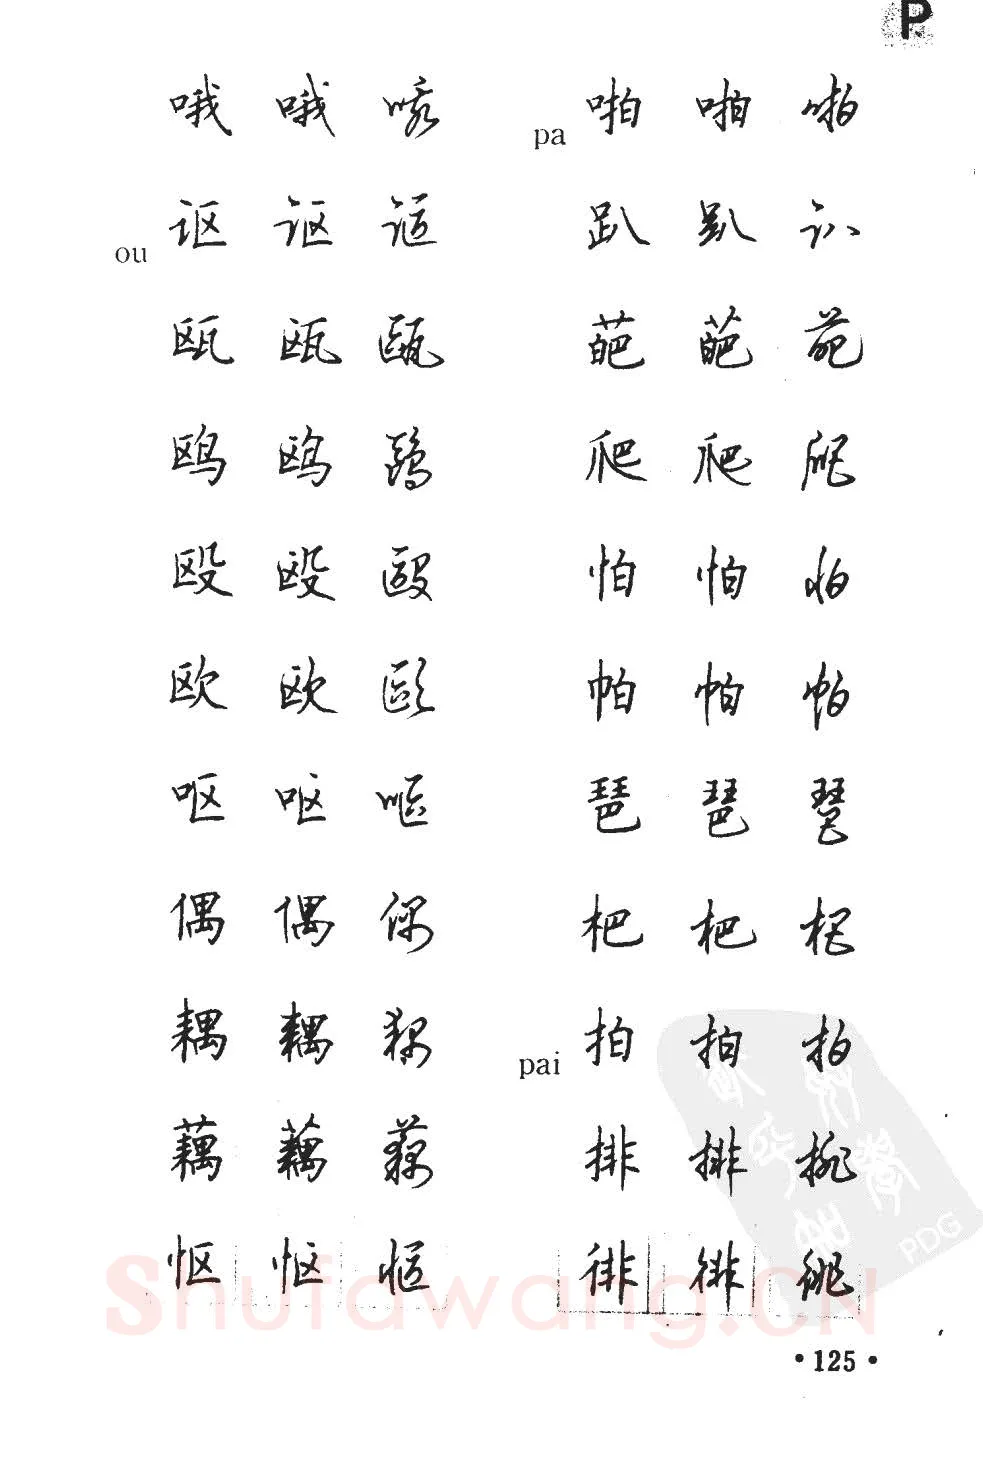 P
哦 哦 哦
ou 讴 讴 讴
瓯 瓯 瓯
鸥 鸥 鸥
殴 殴 殴
欧 欧 欧
呕 呕 呕
偶 偶 偶
耦 耦 耦
藕 藕 藕
怄 怄 怄
pa 啪 啪 啪
趴 趴 趴
葩 葩 葩
爬 爬 爬
怕 怕 怕
帕 帕 帕
琶 琶 琶
杷 杷 杷
pai 拍 拍 拍
排 排 排
徘 徘 徘
PDG
Shufawang.CN
•125•